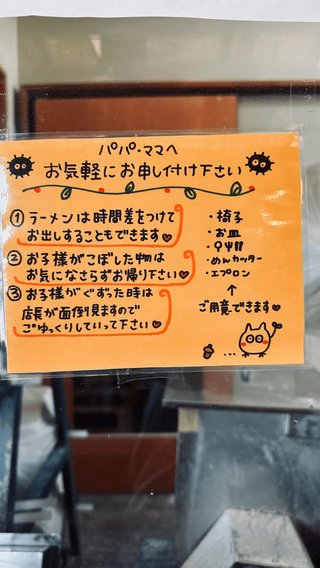 パパ・ママへ
お気軽にお申し付け下さい
①ラーメンは時間差をつけて
お出しすることもできます♥
②お子様がこぼした物は
お気になさらずお帰り下さい♥
③お子様がぐずった時は
店長が面倒見ますので
ごゆっくりしていって下さい♥
・椅子
・お皿
・めんカッター
・エプロン
↑
ご用意できます♥